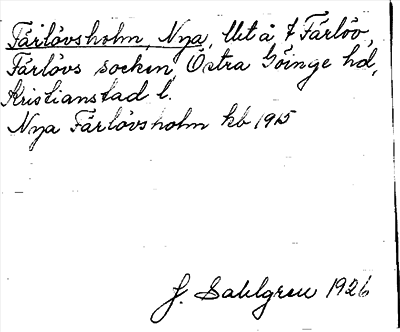 Färlövsholm, Nya, Utå f Färlöv,
Färlövs socken, Östra Göinge hd,
Kristianstad l.
Nya Färlövsholm kb 1915
J. Sahlgren 1926